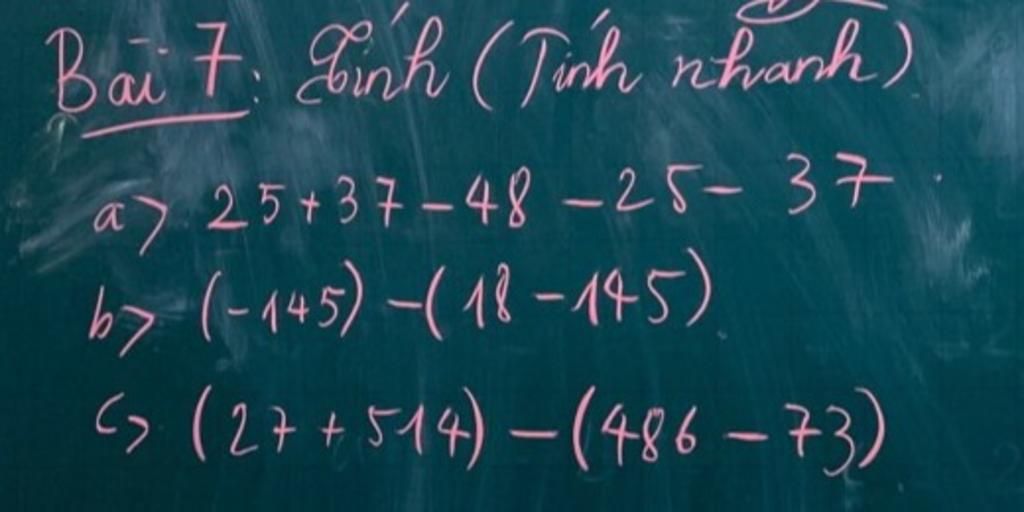 Bài 7: Tính (Tính nhanh)
a> 25+37-48-25-37
b> (-145)-(18-145)
c> (27+514)-(486-73)